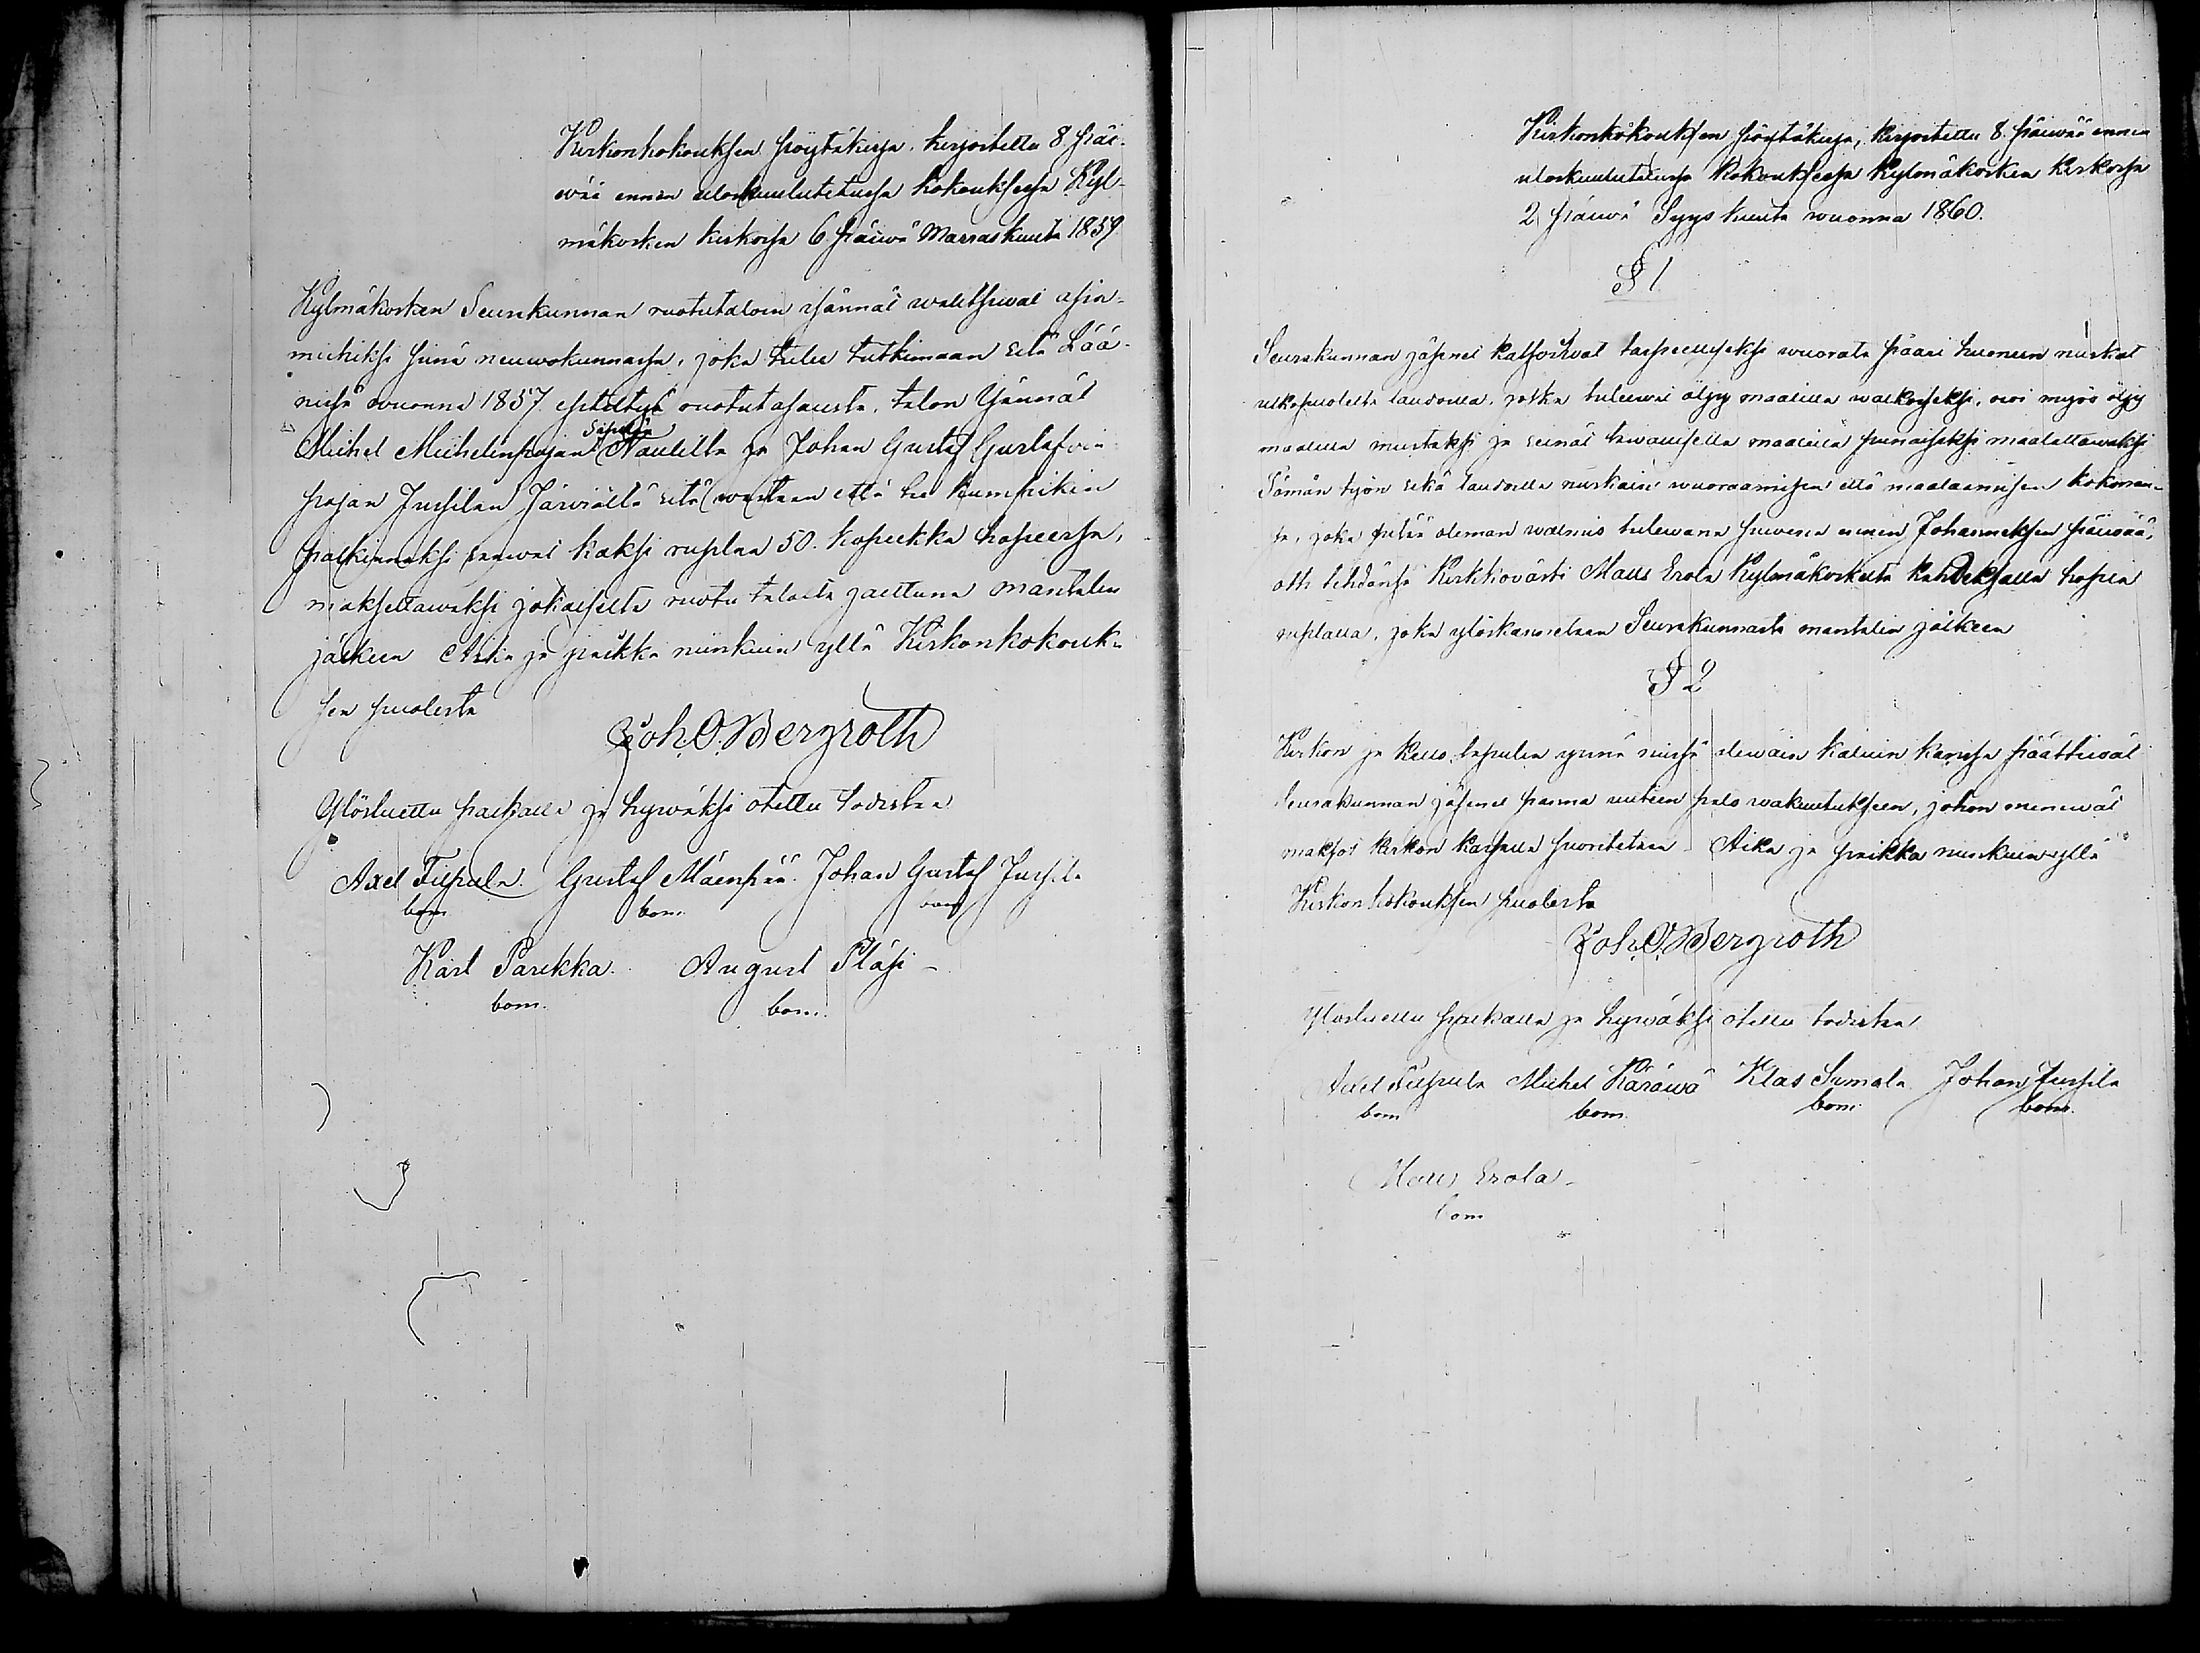 Kirkonkokouksen pöytäkirja, kirjoitettu 8 päi-
wää ennen uloskuulutetussa kokouksessa Kyl-
mäkosken kirkossa 6 päiwä Marraskuuta 1859
Kylmäkosken Seurakunnan ruotutaloin isännät walitsiwat asia-
miehiksi siinä neuwokunnassa, joka tulee tutkimaan sitä Lää-
nissä wuonna 1857 esiteltyä ruotutasausta, talon isännät
Michel Michelinpojan Sipilän Naulilta ja Johan Gustaf Gustafvin
pojan Jussilan Järwiältä sitä wastaan että he kumpikin
palkinnoksi saawat kaksi ruplaa 50. kopeekka hopeessa,
maksettawaksi jokaiselta ruotu talolta jaettuna mantalin
jälkeen Aika ja paikka niinkuin yllä Kirkonkokouk-
sen puolesta
Joh. O. Bergroth
Ylösluettu paikalla ja hywäksi otettu todistaa
Axel Tiipula. Gustaf Mäenpää. Johan Gustaf Jussila
bom bom bom
Karl Parikka. August Pläsi
bom. bom.
Kirkonkokouksen pöytäkirja, kirjoitettu 8. päiwää ennen
uloskuulutetussa Kokouksessa Kylmäkosken Kirkossa
2 päiwä Syyskuuta wuonna 1860.
§ 1
Seurakunnan jäsenet katsoiwat tarpeelliseksi wuorata pääri huoneen nurkat
ulkopuolelta laudoilla, jotka tulewat öljy maalilla walkoiseksi, owi myös öljy
maalilla mustaksi ja seinät tawallisella maalilla punaiseksi maalattawaksi
Tämän työn sekä laudoilla nurkain wuoraamisen että maalaamisen kokonan-
sa, joka pitää oleman walmis tulewana suwena ennen Johanneksen päiwää,
otti tehdänsä Kirkkowärti Matts Erola Kylmäkoskelta kahdeksalla hopia
ruplalla, joka ylöskannetaan Seurakunnasta mantalin jälkeen
§ 2
Kirkon ja Kello tapulin ynnä niissä olewain kaluin kanssa päättiwät
Seurakunnan jäsenet panna uuteen palo wakuutukseen, johon menewät
maksot kirkon kassalla suoritetaan Aika ja paikka niinkuin yllä
Kirkonkokouksen puolesta
Joh. O. Bergroth
Ylösluettu paikalla ja hywäksi otettu todistaa
Axel Tiipula Michel Käräwä Klas Sumala Johan Jussila
bom bom. bom. bom.
Matts Erola
bom